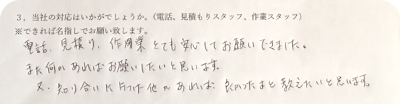 3．当社の対応はいかがでしょうか。（電話、見積もりスタッフ、作業スタッフ）
※できれば名指しでお願い致します。
電話、見積り、作業 とても安心してお願いできました。
また何かあればお願いしたいと思います。
又、知り合いに 他 あれば 教えたいと思います。